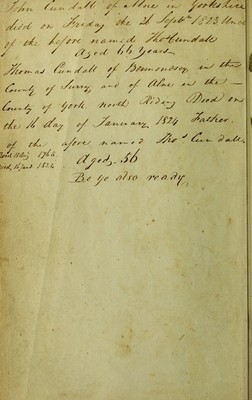 John Cundall of Alne in Yorkshire
died on Friday the 26 Septr 1823 Uncle
of the before named Thos Cundall
Aged 66 years
Thomas Cundall of Bermondsey in the
County of Surry and of Alne in the
County of York North Riding Died on
the 16 day of January 1824 Father
of the afore named Thos Cundall
Aged 56
Be ye also ready